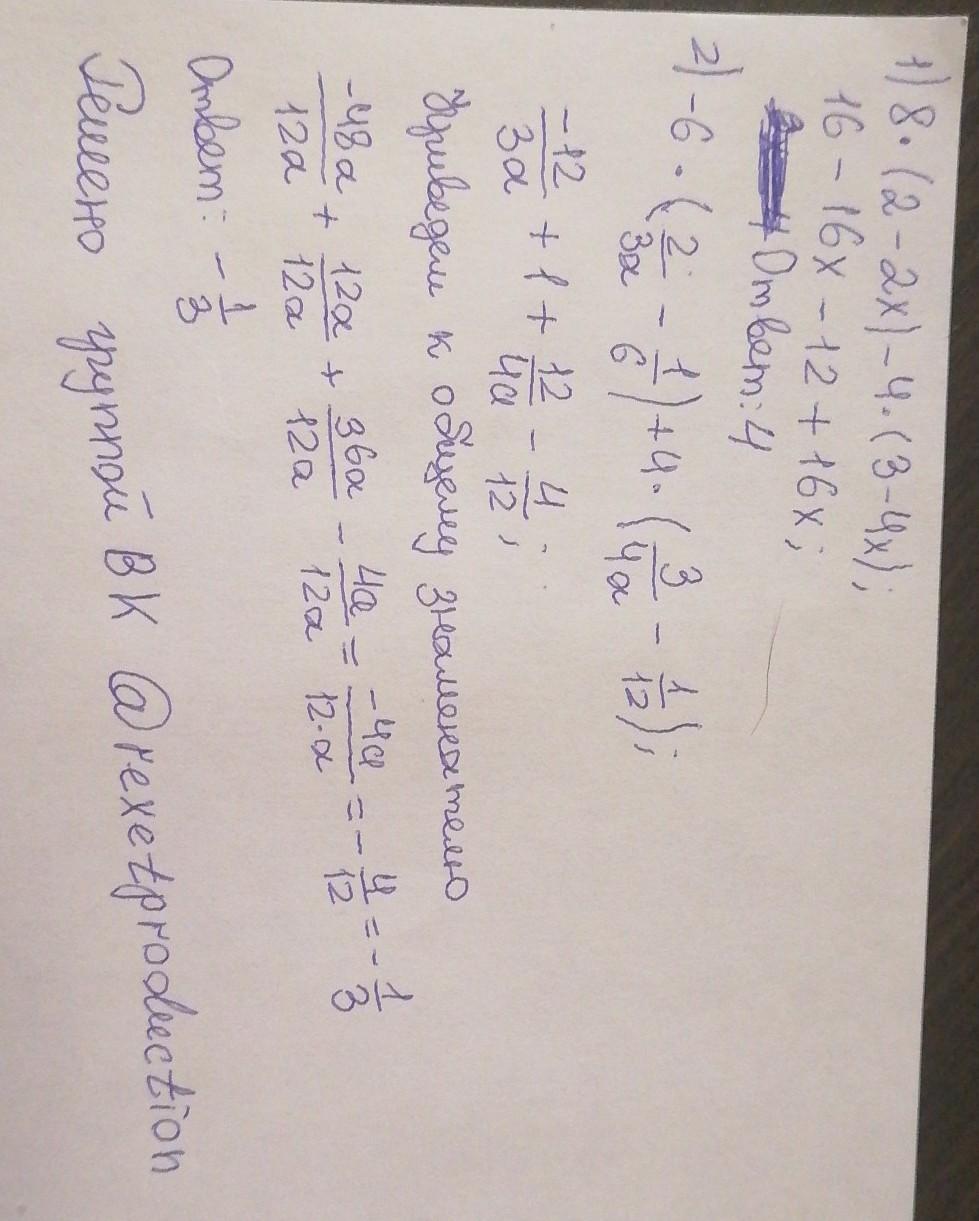 1) 8·(2-2x)-4·(3-4x);
16-16x-12+16x;
Ответ: 4
2) -6·(2/3a - 1/6)+4·(3/4a - 1/12);
-12/3a + 1 + 12/4a - 4/12;
Приведем к общему знаменателю
-48a/12a + 12a/12a + 36a/12a - 4a/12a = -4a/12·a = -4/12 = -1/3
Ответ: -1/3
Решено группой ВК @rexetproduction